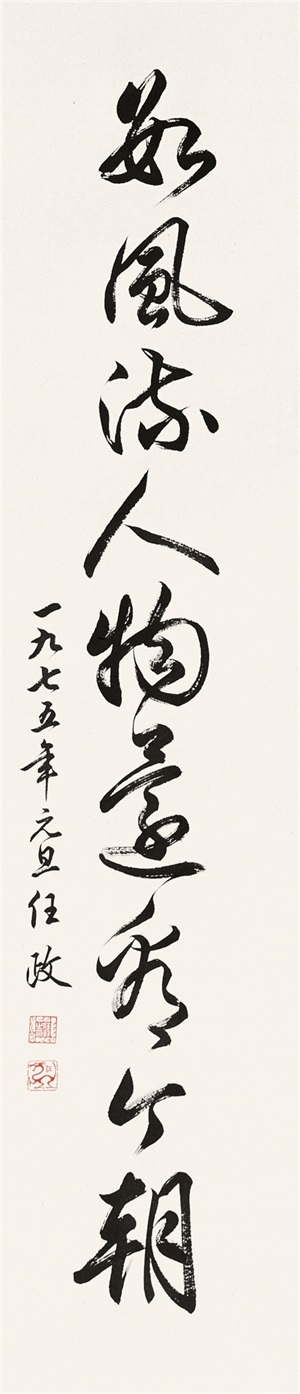 數風流人物還看今朝
一九七五年元旦任政